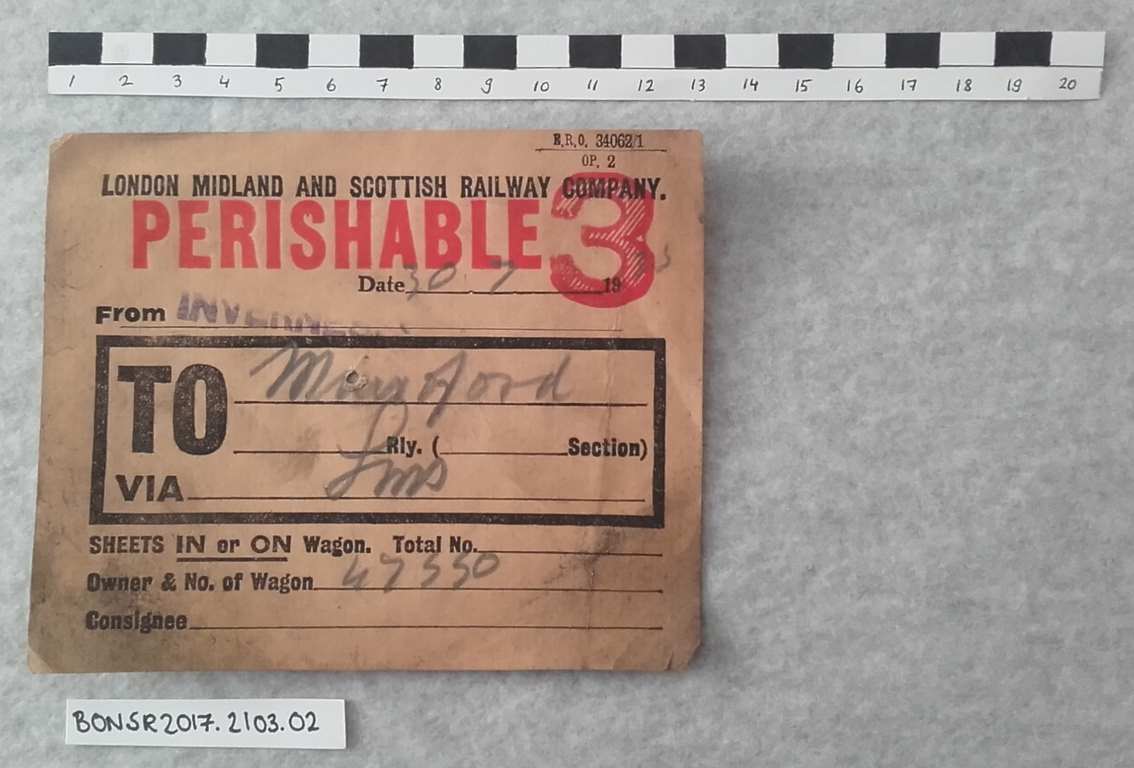 1 2 3 4 5 6 7 8 9 10 11 12 13 14 15 16 17 18 19 20
E.R.O. 34062/1
OP. 2
LONDON MIDLAND AND SCOTTISH RAILWAY COMPANY.
PERISHABLE 3
Date 30 7 19
From INVERNESS
TO
Rly. ( Section)
VIA Lms
SHEETS IN or ON Wagon. Total No.
Owner & No. of Wagon 47550
Consignee
BONSR2017.2103.02